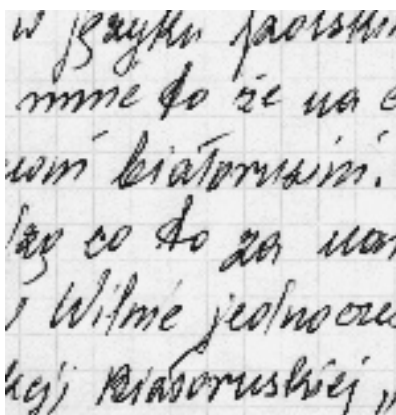 w języku polskim
mnie to że na
białorusini.
co to za
Wilnie jednocześ
białoruskiej,